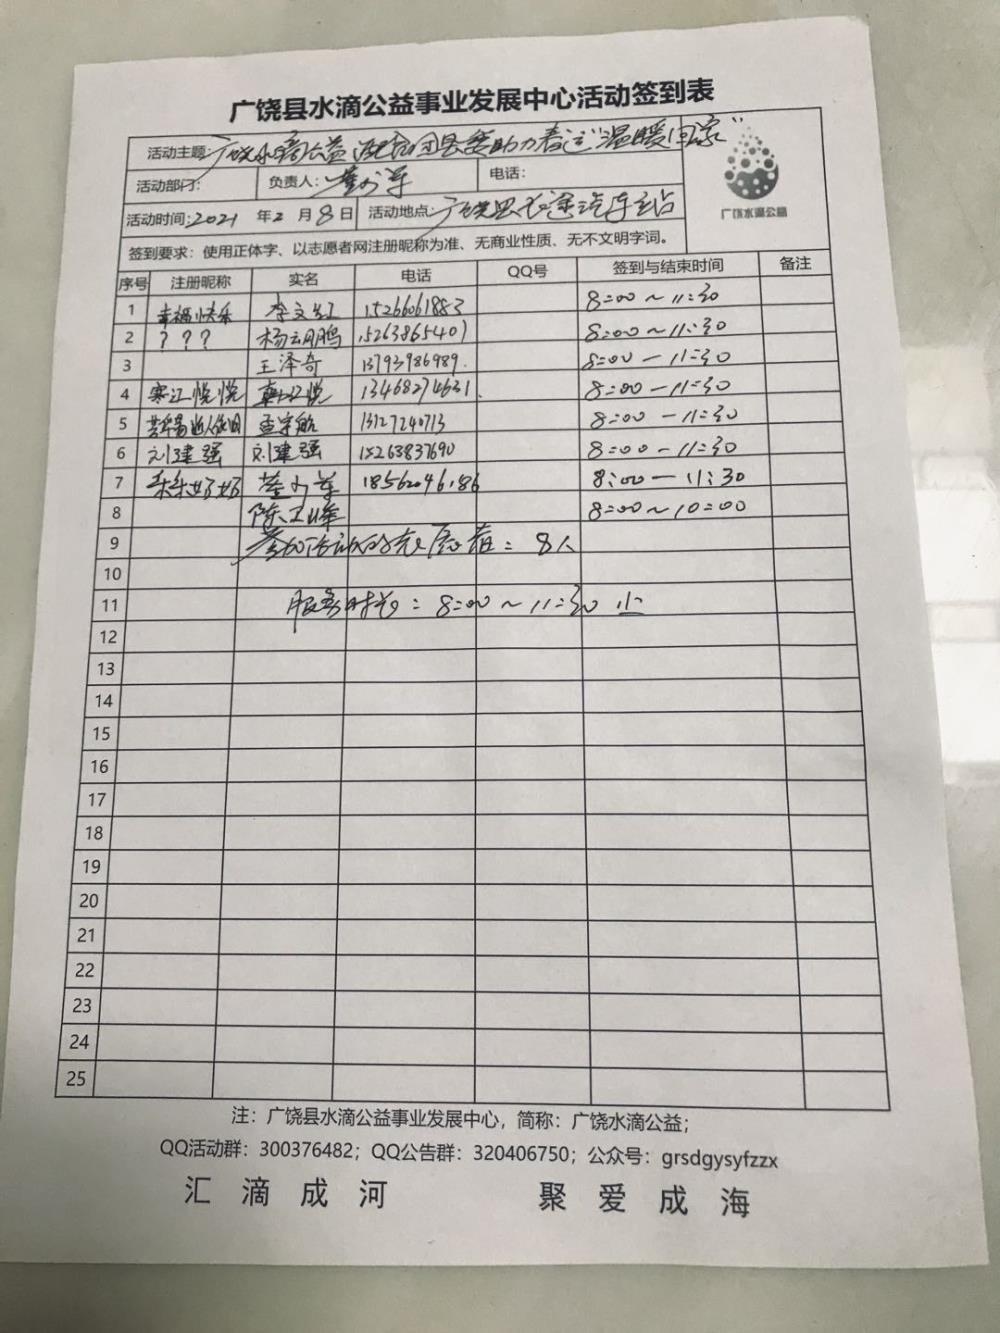 广饶县水滴公益事业发展中心活动签到表
活动主题: 广饶水滴公益 配合团县委助力春运"温暖回家"
活动部门: 负责人: 电话:
广饶水滴公益
活动时间: 2021 年 2 月 8 日 活动地点: 广饶县长途汽车站
签到要求：使用正体字、以志愿者网注册昵称为准、无商业性质、无不文明字词。
序号 注册昵称 实名 电话 QQ号 签到与结束时间 备注
1 幸福快乐 李文红 15266061883 8:00~11:30
2 ??? 杨云鹏 15263865401 8:00~11:30
3 王泽奇 13793986989. 8:00-11:30
4 寒江悦悦 韩江悦 13468274631. 8:00-11:30
5 孟宇航 13127240713 8:00-11:30
6 刘建强 刘建强 15263837690 8:00-11:30
7 乐乐好好 18562046186 8:00-11:30
8 陈卫峰 8:00~10:00
9 参加活动的志愿者：8人
10
11 服务时长：8:00~11:30 小
12
13
14
15
16
17
18
19
20
21
22
23
24
25
注：广饶县水滴公益事业发展中心，简称：广饶水滴公益；
QQ活动群：300376482；QQ公告群：320406750；公众号：grsdgysyfzzx
汇滴成河 聚爱成海